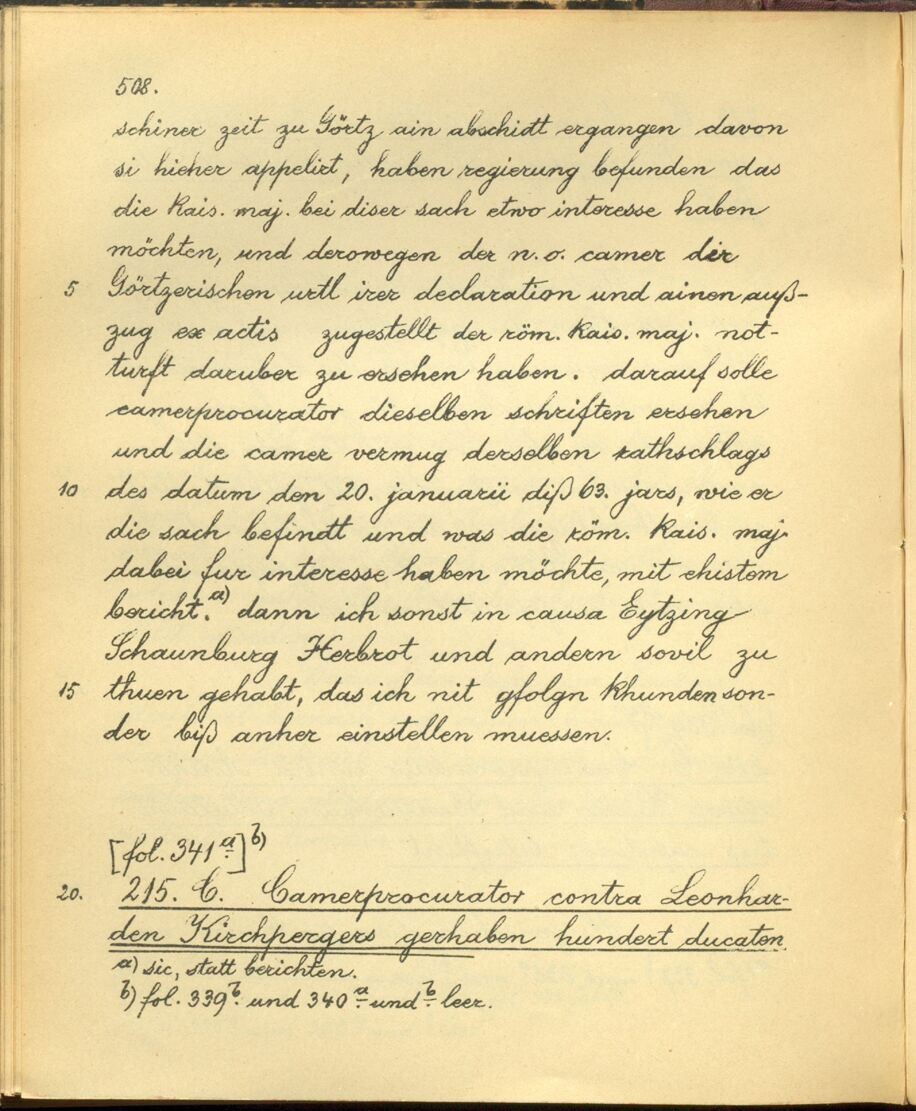 508.
schiner zeit zu Görtz ain abschidt ergangen davon
si hieher appelirt, haben regierung befunden das
die kais. maj. bei diser sach etwo interesse haben
möchten, und derowegen der n. o. camer der
5 Görtzerischen urtl irer declaration und ainen auß-
zug ex actis zugestellt der röm. kais. maj. not-
turft daruber zu ersehen haben. darauf solle
camerprocurator dieselben schriften ersehen
und die camer vermug derselben rathschlags
10 des datum den 20. januarii diß 63. jars, wie er
die sach befindt und was die röm. kais. maj.
dabei fur interesse haben möchte, mit ehistem
bericht.a) dann ich sonst in causa Eytzing
Schaunburg Herbrot und andern sovil zu
15 thuen gehabt, das ich nit gfolgn khunden son-
der biß anher einstellen muessen.
[fol. 341a]b)
20. 215. C. Camerprocurator contra Leonhar-
den Kirchpergers gerhaben hundert ducaten.
a) sic, statt berichten.
b) fol. 339b. und 340a und b leer.